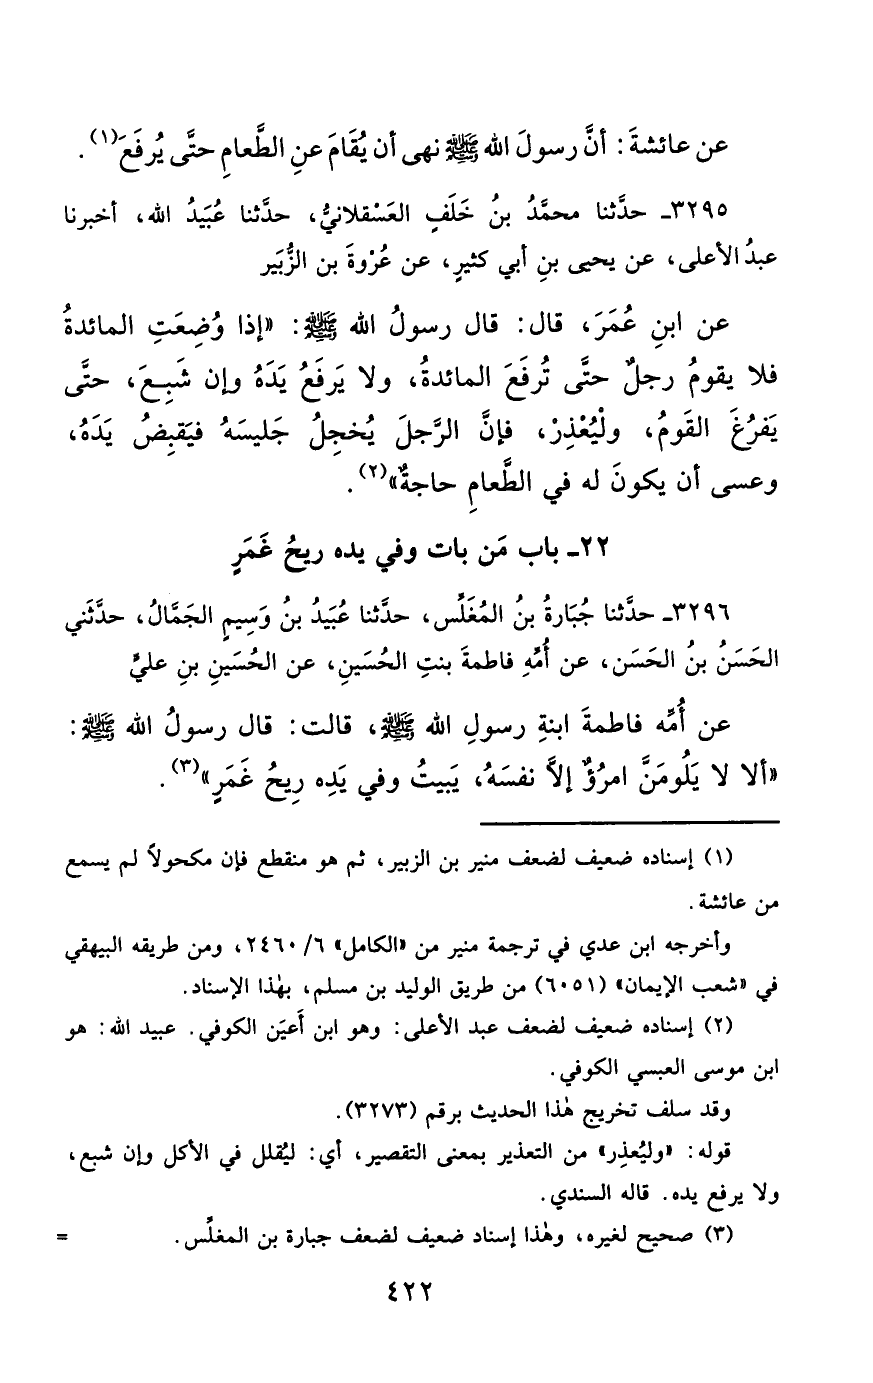 عن عائشةَ: أنَّ رسولَ الله ﷺ نهى أن يُقَامَ عنِ الطَّعامِ حتَّى يُرفَعَ(١).
٣٢٩٥ـ حدَّثنا محمَّدُ بنُ خَلَفٍ العَسْقلانيُّ، حدَّثنا عُبَيدُ الله، أخبرنا
عبدُ الأعلى، عن يحيى بنِ أبي كثيرٍ، عن عُرْوةَ بن الزُّبَير
عن ابنِ عُمَرَ، قال: قال رسولُ الله ﷺ: «إذا وُضِعَتِ المائدةُ
فلا يقومُ رجلٌ حتَّى تُرفَعَ المائدةُ، ولا يَرفَعُ يَدَهُ وإن شَبِعَ، حتَّى
يَفرُغَ القَومُ، ولْيُعْذِرْ، فإنَّ الرَّجلَ يُخجِلُ جَليسَهُ فيَقبِضُ يَدَهُ،
وعسى أن يكونَ له في الطَّعامِ حاجةٌ»(٢).
٢٢ـ باب مَن بات وفي يده ريحُ غَمَرٍ
٣٢٩٦ـ حدَّثنا جُبَارةُ بنُ المُغَلِّس، حدَّثنا عُبَيدُ بنُ وَسِيمٍ الجَمَّالُ، حدَّثَني
الحَسَنُ بنُ الحَسَن، عن أُمِّهِ فاطمةَ بنتِ الحُسَينِ، عن الحُسَينِ بنِ عليٍّ
عن أُمِّه فاطمةَ ابنةِ رسولِ الله ﷺ، قالت: قال رسولُ الله ﷺ:
«ألا لا يَلُومَنَّ امرُؤٌ إلاَّ نفسَهُ، يَبيتُ وفي يَدِه رِيحُ غَمَرٍ»(٣).
(١) إسناده ضعيف لضعف منير بن الزبير، ثم هو منقطع فإن مكحولاً لم يسمع
من عائشة.
وأخرجه ابن عدي في ترجمة منير من «الكامل» ٦/ ٢٤٦٠، ومن طريقه البيهقي
في «شعب الإيمان» (٦٠٥١) من طريق الوليد بن مسلم، بهٰذا الإسناد.
(٢) إسناده ضعيف لضعف عبد الأعلى: وهو ابن أَعيَن الكوفي. عبيد الله: هو
ابن موسى العبسي الكوفي.
وقد سلف تخريج هٰذا الحديث برقم (٣٢٧٣).
قوله: «وليُعذِر» من التعذير بمعنى التقصير، أي: ليُقلل في الأكل وإن شبع،
ولا يرفع يده. قاله السندي.
(٣) صحيح لغيره، وهٰذا إسناد ضعيف لضعف جبارة بن المغلِّس. =
٤٢٢